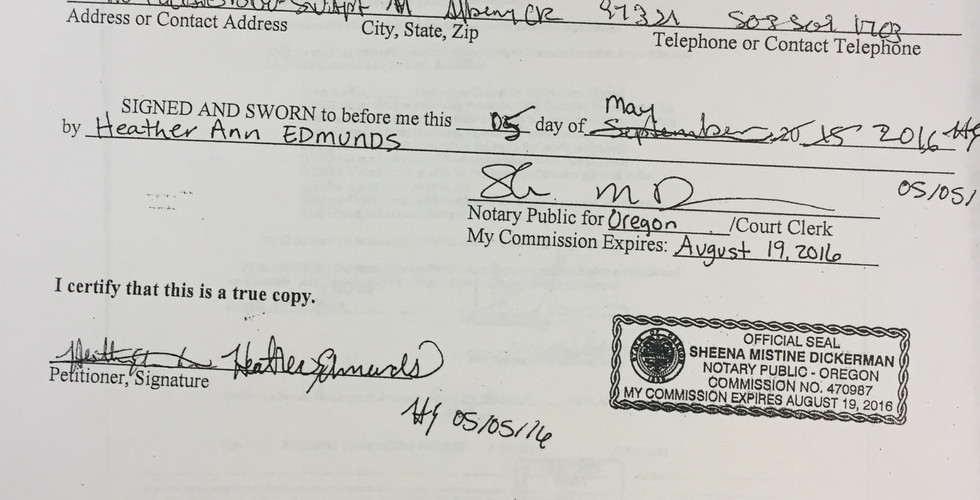 Apt M Albany OR 97321 503 509 1703
Address or Contact Address City, State, Zip Telephone or Contact Telephone
May
SIGNED AND SWORN to before me this 05 day of September, 20 15 2016
by Heather Ann EDMUNDS
05/05/
Notary Public for Oregon /Court Clerk
My Commission Expires: August 19, 2016
I certify that this is a true copy.
Heather Edmunds
Petitioner, Signature
05/05/16
OFFICIAL SEAL
SHEENA MISTINE DICKERMAN
NOTARY PUBLIC - OREGON
COMMISSION NO. 470987
MY COMMISSION EXPIRES AUGUST 19, 2016